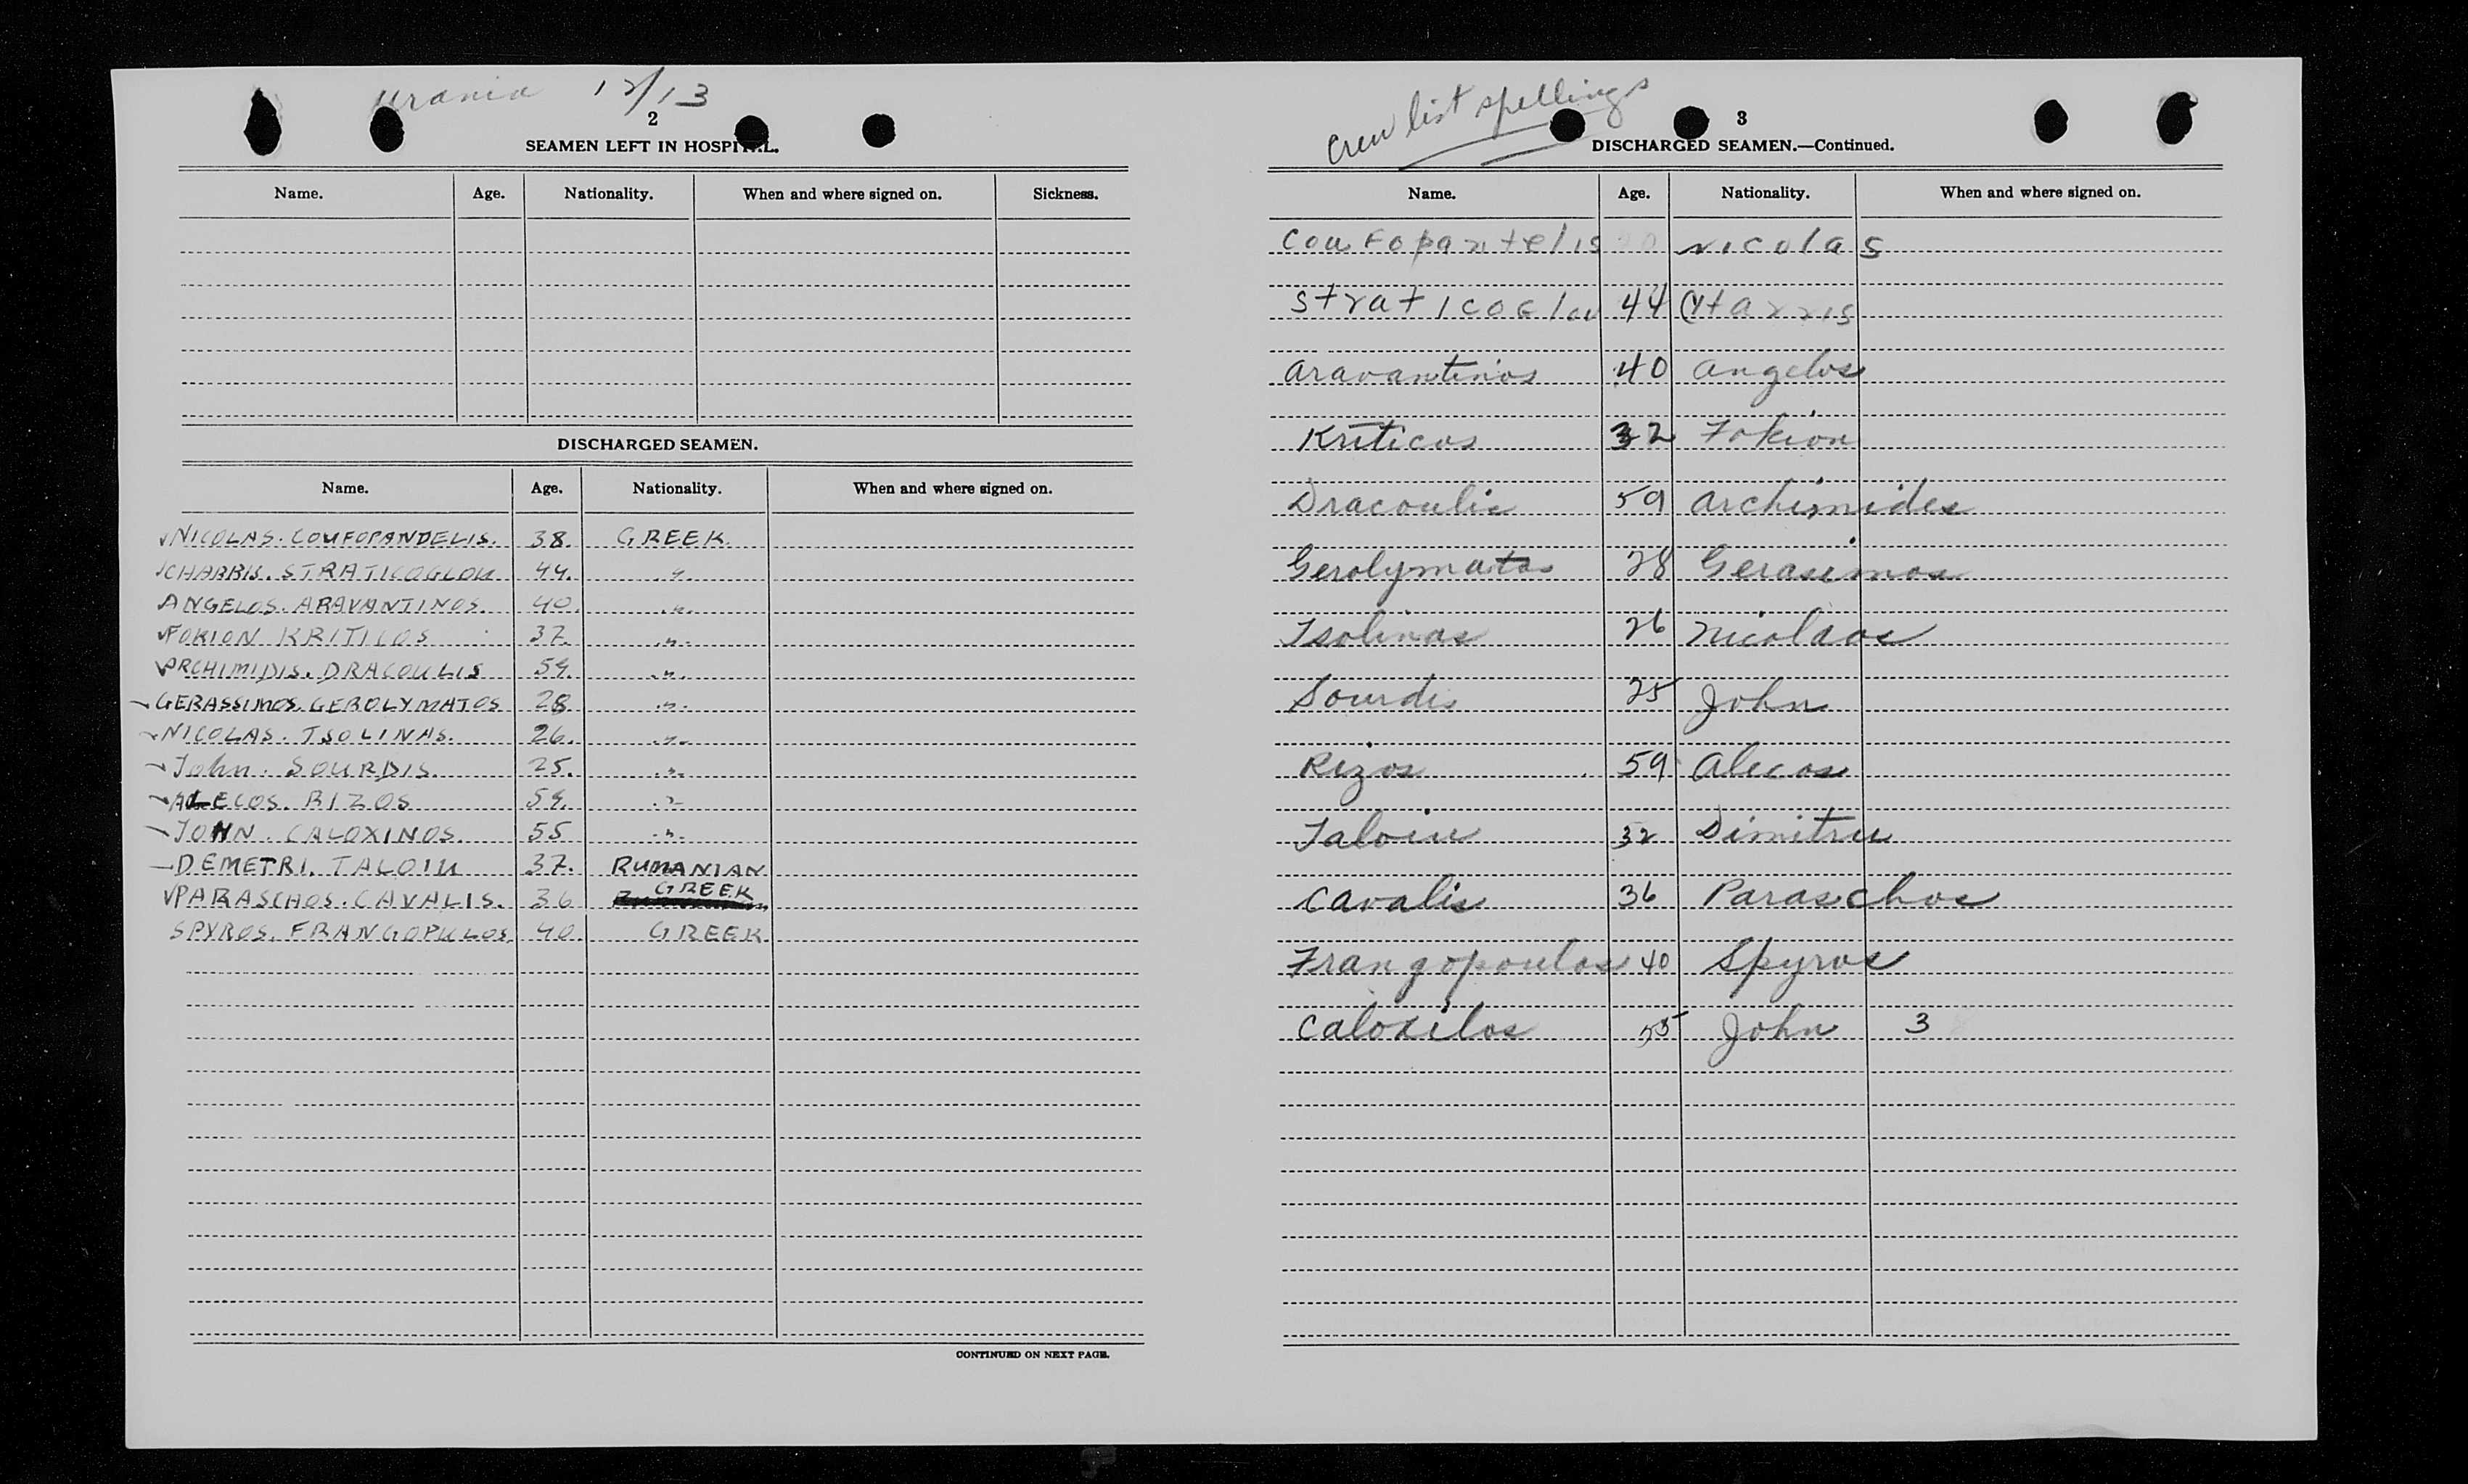 Urania 12/13
2
SEAMEN LEFT IN HOSPITAL.
Name. Age. Nationality. When and where signed on. Sickness.
DISCHARGED SEAMEN.
Name. Age. Nationality. When and where signed on.
NICOLAS. COUFOPANDELIS. 38. GREEK.
CHARRIS. STRATICOGLOU 44. "
ANGELOS. ARAVANTINOS. 40. "
FOKION KRITICOS 37. "
ARCHIMIDIS. DRACOULIS 59. "
GERASSIMOS. GEROLYMATOS 28. "
NICOLAS. TSOLINAS. 26. "
John. SOURDIS. 25. "
ALECOS. RIZOS 59. "
JOHN. CALOXINOS. 55 "
DEMETRI. TALOIU 37. RUMANIAN
PARASCHOS. CAVALIS. 36 GREEK
SPYROS. FRANGOPULOS. 40. GREEK
CONTINUED ON NEXT PAGE.
Crew list spellings
3
DISCHARGED SEAMEN.—Continued.
Name. Age. Nationality. When and where signed on.
Coufopantelis Nicolas
Straticoglou 44 Charris
Aravantinos 40 Angelos
Kriticos 32 Fokion
Dracoulis 59 Archimides
Gerolymatos 28 Gerasimos
Tsolinas 26 Nicolaos
Sourdis 25 John
Rizos 59 Alecos
Taloiu 32 Dimitru
Cavalis 36 Paraschos
Frangopoulos 40 Spyros
Caloxilos 55 John 3